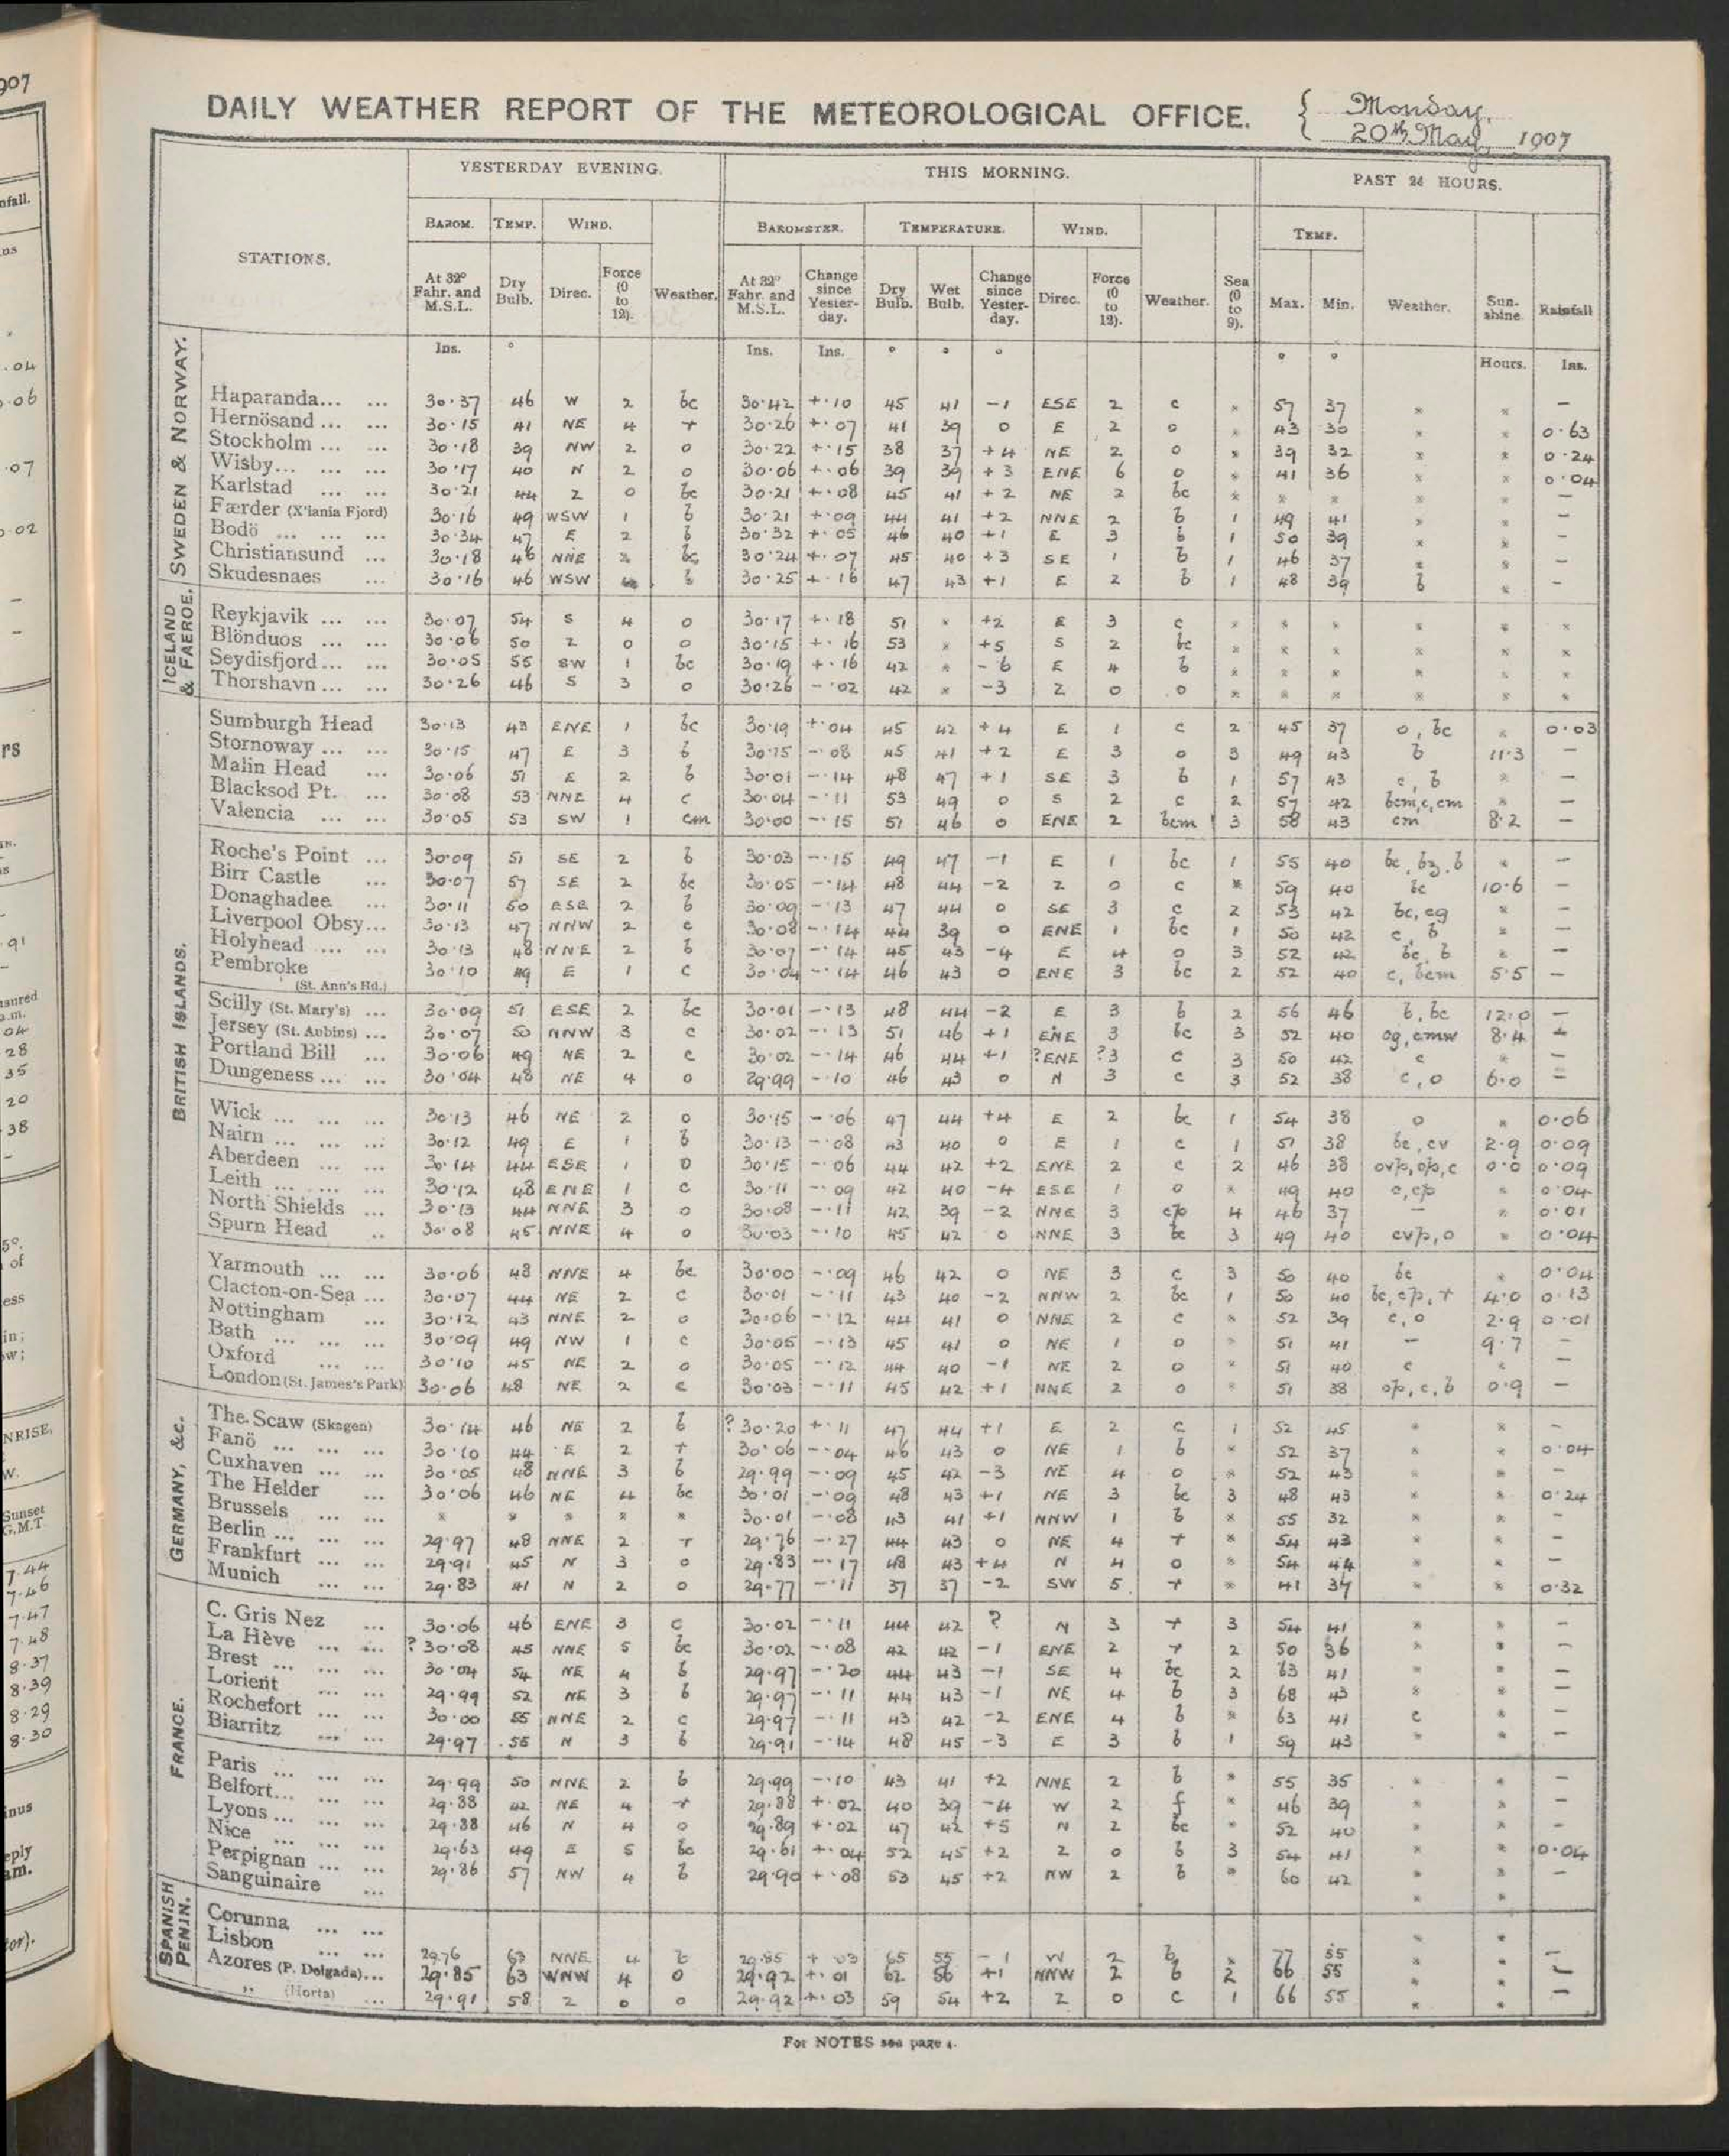 907
DAILY WEATHER REPORT OF THE METEOROLOGICAL OFFICE.
Monday,
20th May, 1907
YESTERDAY EVENING. THIS MORNING. PAST 24 HOURS.
BAROM. TEMP. WIND. BAROMETER. TEMPERATURE. WIND. TEMP.
STATIONS. At 32° Fahr. and M.S.L. Dry Bulb. Direc. Force (0 to 12). Weather. At 32° Fahr. and M.S.L. Change since Yester-day. Dry Bulb. Wet Bulb. Change since Yester-day. Direc. Force (0 to 12). Weather. Sea (0 to 9). Max. Min. Weather. Sun-shine. Rainfall
Ins. ° Ins. Ins. ° ° ° ° ° Hours. Ins.
SWEDEN & NORWAY.
Haparanda... ... 30·37 46 W 2 bc 30·42 +·10 45 41 -1 ESE 2 c * 57 37 * * -
Hernösand ... ... 30·15 41 NE 4 r 30·26 +·07 41 39 0 E 2 o * 43 30 * * 0·63
Stockholm ... ... 30·18 39 NW 2 o 30·22 +·15 38 37 +4 NE 2 o * 39 32 * * 0·24
Wisby... ... ... 30·17 40 N 2 o 30·06 +·06 39 39 +3 ENE 6 o * 41 36 * * 0·04
Karlstad ... ... 30·21 44 Z 0 bc 30·21 +·08 45 41 +2 NE 2 bc * * * * * -
Færder (X'iania Fjord) 30·16 49 WSW 1 b 30·21 +·09 44 41 +2 NNE 2 b 1 49 41 * * -
Bodö ... ... ... 30·34 47 E 2 b 30·32 +·05 46 40 +1 E 3 b 1 50 39 * * -
Christiansund ... 30·18 46 NNE 2 bc 30·24 +·07 45 40 +3 SE 1 b 1 46 37 * * -
Skudesnaes ... 30·16 46 WSW b 30·25 +·16 47 43 +1 E 2 b 1 48 39 b * -
ICELAND & FAEROE.
Reykjavik ... ... 30·07 54 S 4 o 30·17 +·18 51 * +2 E 3 c * * * * * *
Blönduos ... ... 30·06 50 Z 0 o 30·15 +·16 53 * +5 S 2 bc * * * * * *
Seydisfjord... ... 30·05 55 SW 1 bc 30·19 +·16 42 * -6 E 4 b * * * * * *
Thorshavn ... ... 30·26 46 S 3 o 30·26 -·02 42 * -3 Z 0 o * * * * * *
BRITISH ISLANDS.
Sumburgh Head 30·13 43 ENE 1 bc 30·19 +·04 45 42 +4 E 1 c 2 45 37 o, bc * 0·03
Stornoway ... ... 30·15 47 E 3 b 30·15 -·08 45 41 +2 E 3 o 3 49 43 b 11·3 -
Malin Head ... 30·06 51 E 2 b 30·01 -·14 48 47 +1 SE 3 b 1 57 43 c, b * -
Blacksod Pt. ... 30·08 53 NNE 4 c 30·04 -·11 53 49 0 S 2 c 2 57 42 bcm, c, cm * -
Valencia ... ... 30·05 53 SW 1 cm 30·00 -·15 51 46 0 ENE 2 bcm 3 58 43 cm 8·2 -
Roche's Point ... 30·09 51 SE 2 b 30·03 -·15 49 47 -1 E 1 bc 1 55 40 bc, bz, b * -
Birr Castle ... 30·07 57 SE 2 bc 30·05 -·14 48 44 -2 Z 0 c * 59 40 bc 10·6 -
Donaghadee ... 30·11 50 ESE 2 b 30·09 -·13 47 44 0 SE 3 c 2 53 42 bc, cg * -
Liverpool Obsy... 30·13 47 NNW 2 c 30·08 -·14 44 39 0 ENE 1 bc 1 50 42 c, b * -
Holyhead ... ... 30·13 48 NNE 2 b 30·07 -·14 45 43 -4 E 4 o 3 52 42 bc, b * -
Pembroke 30·10 49 E 1 c 30·04 -·14 46 43 0 ENE 3 bc 2 52 40 c, bcm 5·5 -
(St. Ann's Hd.)
Scilly (St. Mary's) ... 30·09 51 ESE 2 bc 30·01 -·13 48 44 -2 E 3 b 2 56 46 b, bc 12·0 -
Jersey (St. Aubins) ... 30·07 50 NNW 3 c 30·02 -·13 51 46 +1 ENE 3 bc 3 52 40 og, cmw 8·4 -
Portland Bill ... 30·06 49 NE 2 c 30·02 -·14 46 44 +1 ?ENE ?3 c 3 50 42 c * -
Dungeness ... ... 30·04 48 NE 4 o 29·99 -·10 46 43 0 N 3 c 3 52 38 c, o 6·0 -
Wick ... ... ... 30·13 46 NE 2 o 30·15 -·06 47 44 +4 E 2 bc 1 54 38 o * 0·06
Nairn ... ... ... 30·12 49 E 1 b 30·13 -·08 43 40 0 E 1 c 1 51 38 bc, cv 2·9 0·09
Aberdeen ... ... 30·14 44 ESE 1 o 30·15 -·06 44 42 +2 ENE 2 c 2 46 38 ovp, op, c 0·0 0·09
Leith ... ... ... 30·12 48 ENE 1 c 30·11 -·09 42 40 -4 ESE 1 o * 49 40 c, cp * 0·04
North Shields ... 30·13 44 NNE 3 o 30·08 -·11 42 39 -2 NNE 3 cp 4 46 37 - * 0·01
Spurn Head .. 30·08 45 NNE 4 o 30·03 -·10 45 42 0 NNE 3 bc 3 49 40 cvp, o * 0·04
Yarmouth ... ... 30·06 48 NNE 4 bc 30·00 -·09 46 42 0 NE 3 c 3 50 40 bc * 0·04
Clacton-on-Sea ... 30·07 44 NE 2 c 30·01 -·11 43 40 -2 NNW 2 bc 1 50 40 bc, cp, r 4·0 0·13
Nottingham ... 30·12 43 NNE 2 o 30·06 -·12 44 41 0 NNE 2 c * 52 39 c, o 2·9 0·01
Bath ... ... ... 30·09 49 NW 1 c 30·05 -·13 45 41 0 NE 1 o * 51 41 - 9·7 -
Oxford ... ... 30·10 45 NE 2 o 30·05 -·12 44 40 -1 NE 2 o * 51 40 c * -
London (St. James's Park) 30·06 48 NE 2 c 30·03 -·11 45 42 +1 NNE 2 o * 51 38 op, c, b 0·9 -
GERMANY, &c.
The Scaw (Skagen) 30·14 46 NE 2 b ?30·20 +·11 47 44 +1 E 2 c 1 52 45 * * -
Fanö ... ... ... 30·10 44 E 2 r 30·06 -·04 46 43 0 NE 1 b * 52 37 * * 0·04
Cuxhaven ... ... 30·05 48 NNE 3 b 29·99 -·09 45 42 -3 NE 4 o * 52 43 * * -
The Helder ... 30·06 46 NE 4 bc 30·01 -·09 48 43 +1 NE 3 bc 3 48 43 * * 0·24
Brussels ... ... * * * * * 30·01 -·08 43 41 +1 NNW 1 b * 55 32 * * -
Berlin ... ... ... 29·97 48 NNE 2 r 29·76 -·27 44 43 0 NE 4 r * 54 43 * * -
Frankfurt ... ... 29·91 45 N 3 o 29·83 -·17 48 43 +4 N 4 o * 54 44 * * -
Munich ... ... 29·83 41 N 2 o 29·77 -·11 37 37 -2 SW 5 r * 41 37 * * 0·32
FRANCE.
C. Gris Nez ... 30·06 46 ENE 3 c 30·02 -·11 44 42 ? N 3 r 3 54 41 * * -
La Hève ... ... ?30·08 45 NNE 5 bc 30·02 -·08 42 42 -1 ENE 2 r 2 50 36 * * -
Brest ... ... ... 30·04 54 NE 4 b 29·97 -·20 44 43 -1 SE 4 bc 2 63 41 * * -
Lorient ... ... 29·99 52 NE 3 b 29·97 -·11 44 43 -1 NE 4 b 3 68 43 * * -
Rochefort ... ... 30·00 55 NNE 2 c 29·97 -·11 43 42 -2 ENE 4 b * 63 41 c * -
Biarritz ... ... 29·97 55 N 3 b 29·91 -·14 48 45 -3 E 3 b 1 59 43 * * -
Paris ... ... ... 29·99 50 NNE 2 b 29·99 -·10 43 41 +2 NNE 2 b * 55 35 * * -
Belfort... ... ... 29·88 42 NE 4 r 29·88 +·02 40 39 -4 W 2 f * 46 39 * * -
Lyons ... ... ... 29·88 46 N 4 o 29·89 +·02 47 42 +5 N 2 bc * 52 40 * * -
Nice ... ... ... 29·63 49 E 5 bc 29·61 +·04 52 45 +2 Z 0 b 3 54 41 * * 0·04
Perpignan ... ... 29·86 57 NW 4 b 29·90 +·08 53 45 +2 NW 2 b * 60 42 * * -
Sanguinaire ... * *
SPANISH PENIN.
Corunna ... ... * *
Lisbon ... ... 29·76 63 NNE 4 b 29·85 +·03 65 55 -1 W 2 b * 77 55 * * -
Azores (P. Delgada)... 29·85 63 WNW 4 o 29·92 +·01 62 56 +1 NNW 2 b 2 66 55 * * -
„ (Horta) ... 29·91 58 Z 0 o 29·92 +·03 59 54 +2 Z 0 c 1 66 55 * * -
For NOTES see page 4.